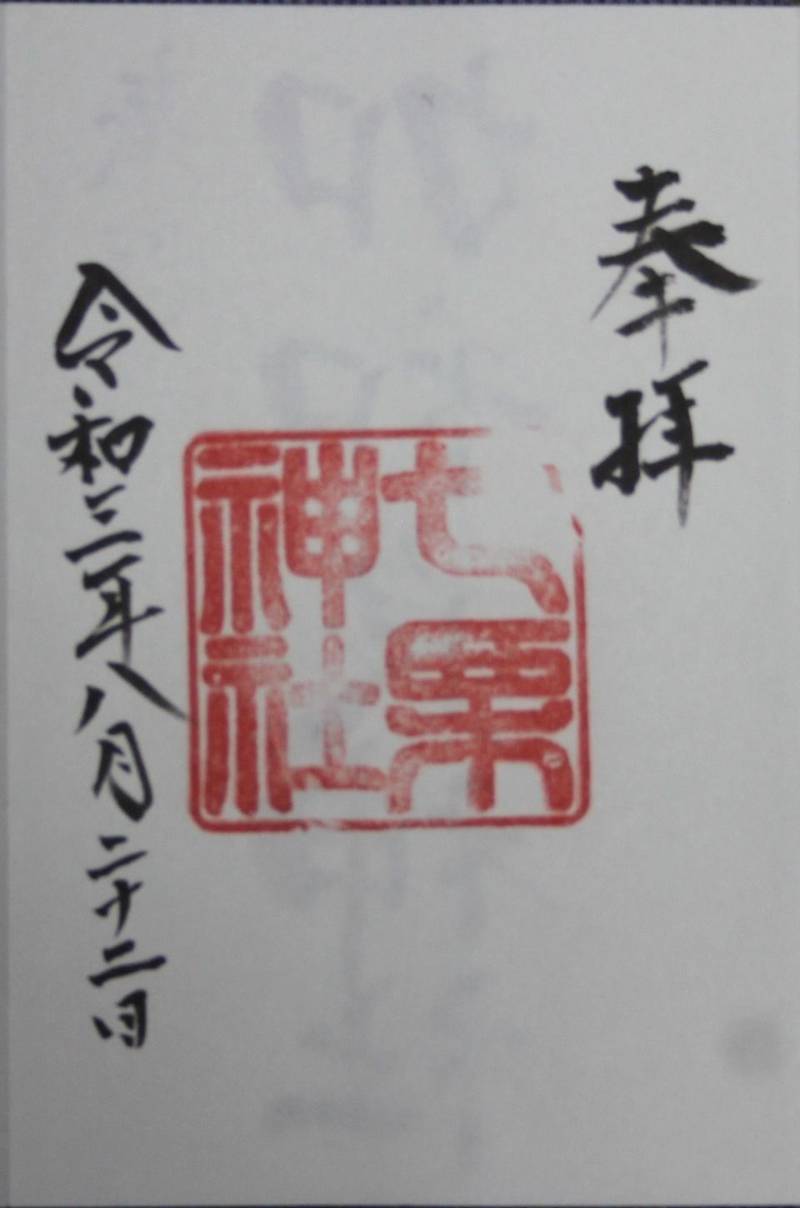 奉拝
七栗
神社
令和三年八月二十二日